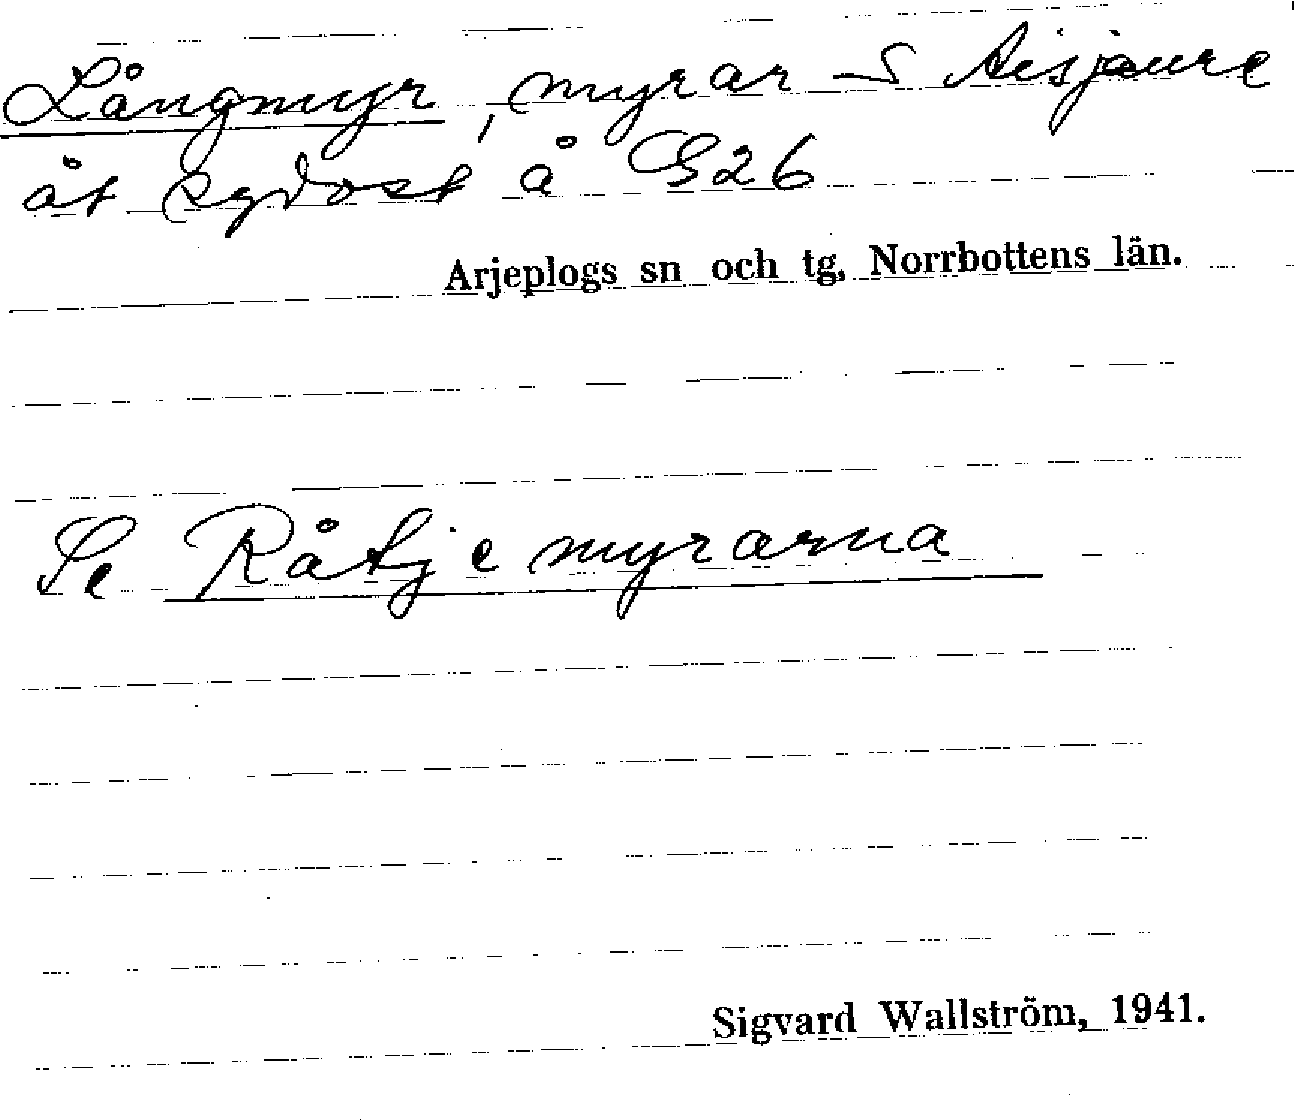 Långmyr, myrar S Aisjaure
åt sydost å G26
Arjeplogs sn och tg, Norrbottens län.
Se Råtjemyrarna
Sigvard Wallström, 1941.